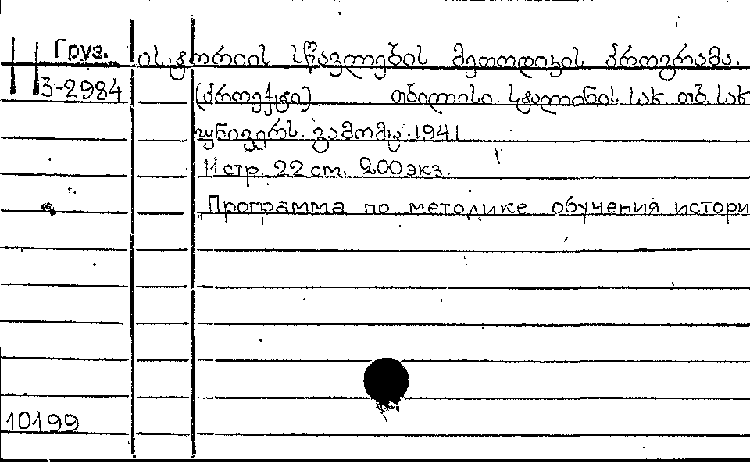 Груз.
3-2984
ისტორიის სწავლების მეთოდიკის პროგრამა.
(პროექტი) თბილისი. სტალინის. სახ. თბ. სახ
უნივერს. გამომც. 1941
11 стр. 22 cm. 200 экз.
Программа по методике обучения истори
10199